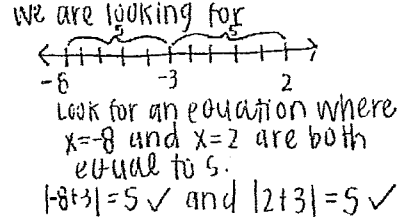 We are looking for
5 5
-8 -3 2
Look for an equation where
x=-8 and x=2 are both
equal to 5.
|-8+3|=5 ✓ and |2+3|=5 ✓